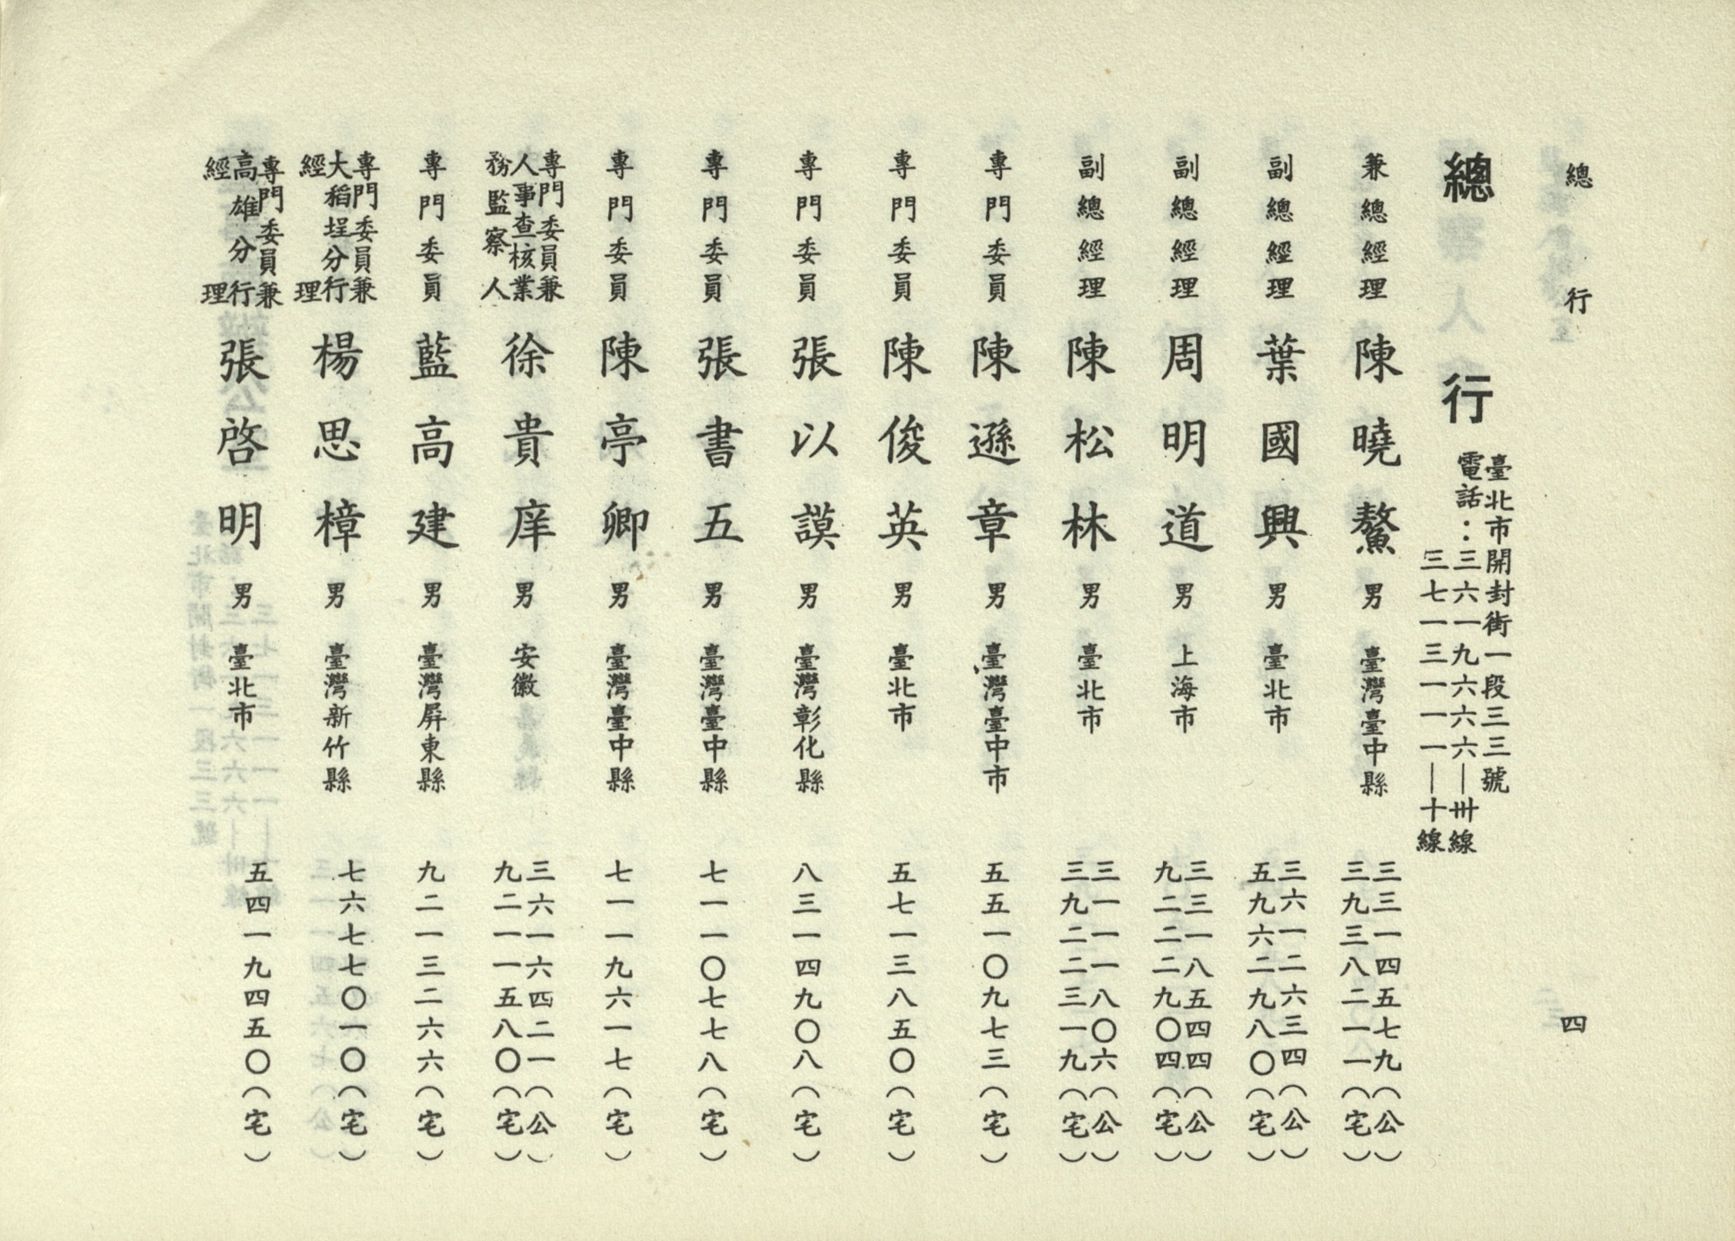 總行
四
總行
臺北市開封街一段三三號
電話:三六一九六六六—卅線
三七一三一一一—十線
兼總經理 陳曉鰲 男 臺灣臺中縣 三三一四五七九(公)
三九三八二一一(宅)
副總經理 葉國興 男 臺北市 三六一二六三四(公)
五九六二九八〇(宅)
副總經理 周明道 男 上海市 三三一八五四四(公)
九二二二九〇四(宅)
副總經理 陳松林 男 臺北市 三一一一八〇六(公)
三九二二三一九(宅)
專門委員 陳遜章 男 臺灣臺中市 五五一〇九七三(宅)
專門委員 陳俊英 男 臺北市 五七一三八五〇(宅)
專門委員 張以謨 男 臺灣彰化縣 八三一四九〇八(宅)
專門委員 張書五 男 臺灣臺中縣 七一一〇七七八(宅)
專門委員 陳亭卿 男 臺灣臺中縣 七一一九六一七(宅)
專門委員兼
人事查核業
務監察人 徐貴庠 男 安徽 三六一六四二一(公)
九二一一五八〇(宅)
專門委員 藍高建 男 臺灣屏東縣 九二一三二六六(宅)
專門委員兼
大稻埕分行
經理 楊思樟 男 臺灣新竹縣 七六七七〇一〇(宅)
專門委員兼
高雄分行
經理 張啓明 男 臺北市 五四一九四五〇(宅)